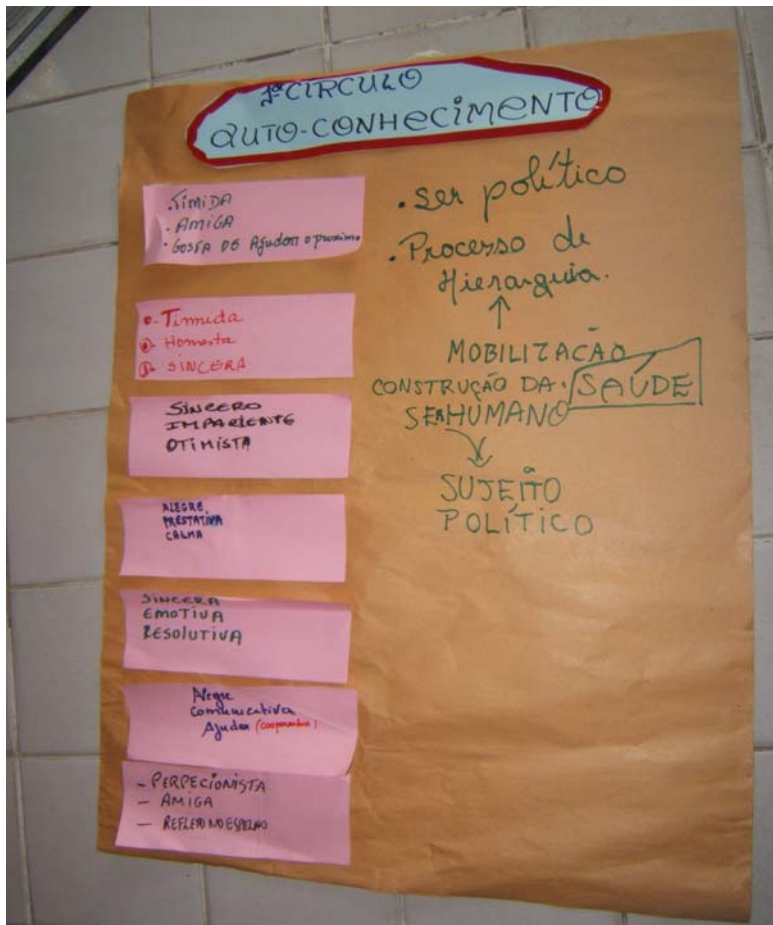 1º CÍRCULO
AUTO-CONHECIMENTO
. TIMIDA
. AMIGA
. GOSTA DE Ajudar o proximo
- Timmida
- Homesta
- SINCERA
SINCERO
IMPACIENTE
OTIMISTA
ALEGRE,
PRESTATIVA
CALMA
SINCERA
EMOTIVA
RESOLUTIVA
Alegre
Comunicativa
Ajudar (cooperativa)
- PERFECIONISTA
- AMIGA
- REFLEXO NO ESPELHO
. Ser político
. Processo de
Hierarquia.
MOBILIZAÇÃO
CONSTRUÇÃO DA. SAÚDE
SER HUMANO
SUJEITO
POLÍTICO